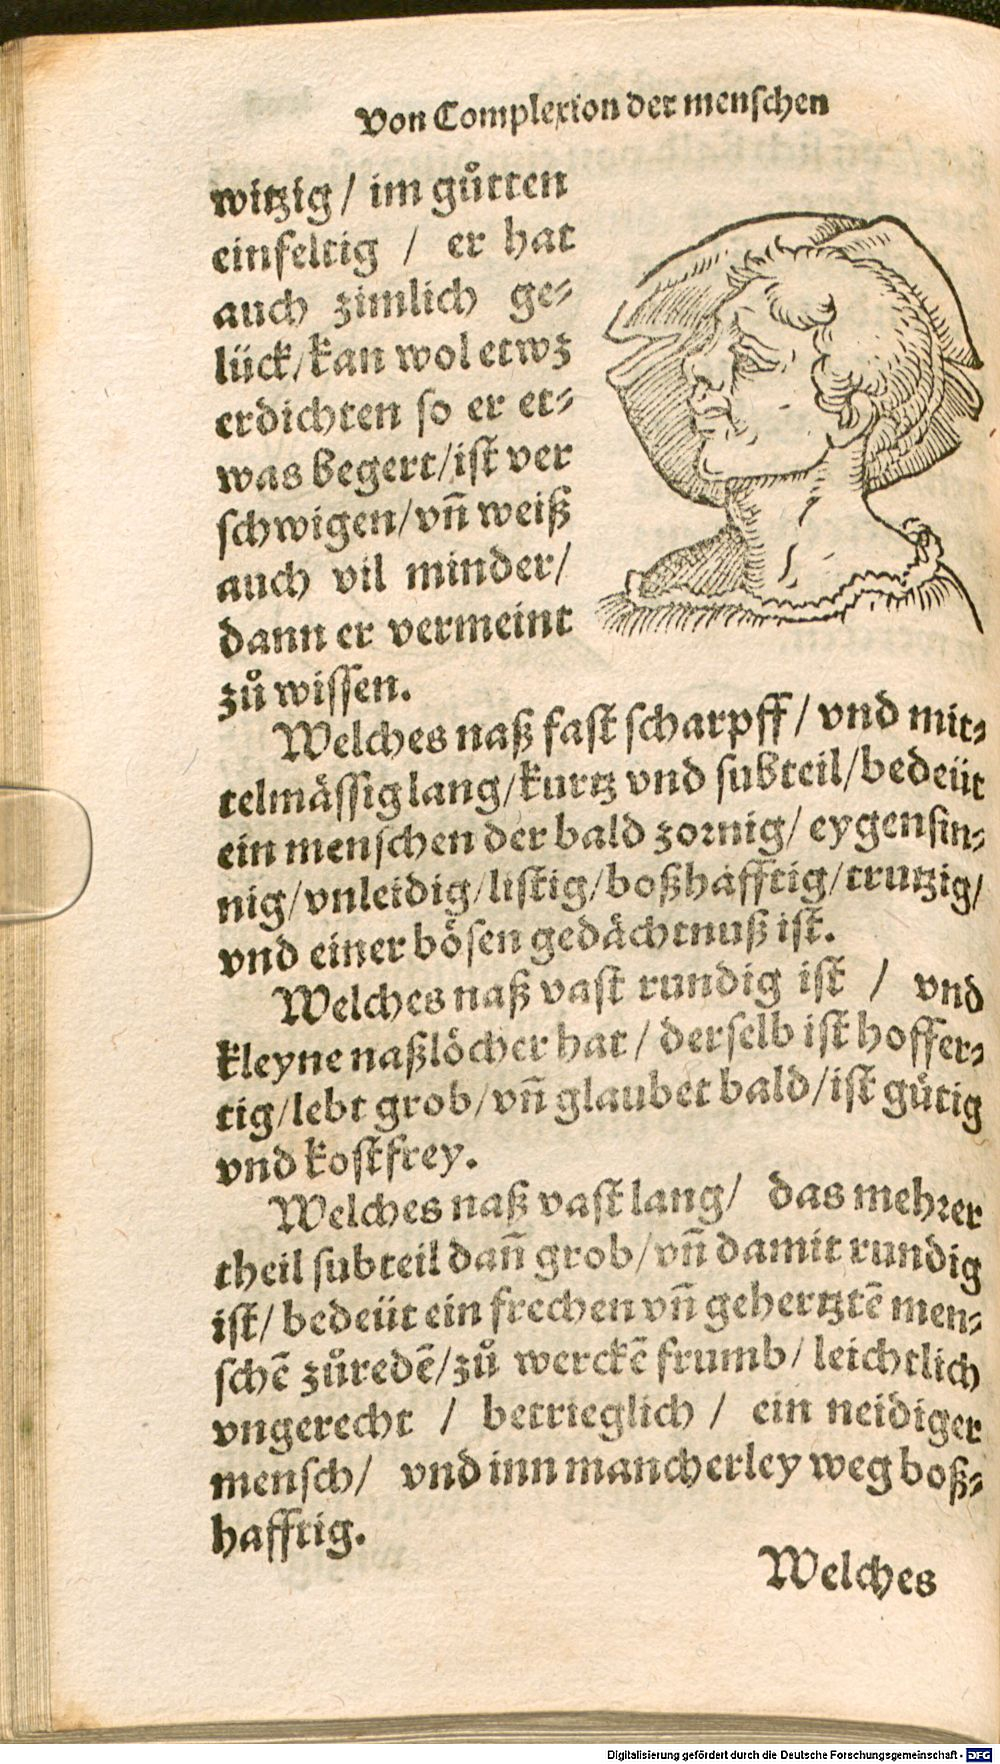 Von Complexion der menschen
witzig / im gůtten
einfeltig / er hat
auch zimlich ge⸗
lück/kan wol etwz
erdichten so er et⸗
was begert/ist ver
schwigen/vñ weiß
auch vil minder/
dann er vermeint
zů wissen.
Welches naß fast scharpff / vnd mit⸗
telmässig lang/kurtz vnd subteil/bedeüt
ein menschen der bald zornig/ eygensin⸗
nig/vnleidig/listig/boßhafftig/trutzig/
vnd einer bösen gedächtnuß ist.
Welches naß vast rundig ist / vnd
kleyne naßlöcher hat / derselb ist hoffer⸗
tig/lebt grob/vñ glaubet bald/ist gůtig
vnd kostfrey.
Welches naß vast lang/ das mehrer
theil subteil dañ grob/vñ damit rundig
ist/ bedeüt ein frechen vñ gehertztē men⸗
schē zůredē/zů werckē frumb/ leichtlich
vngerecht / betrieglich / ein neidiger
mensch/ vnd inn mancherley weg boß⸗
hafftig.
Welches
Digitalisierung gefördert durch die Deutsche Forschungsgemeinschaft - DFG